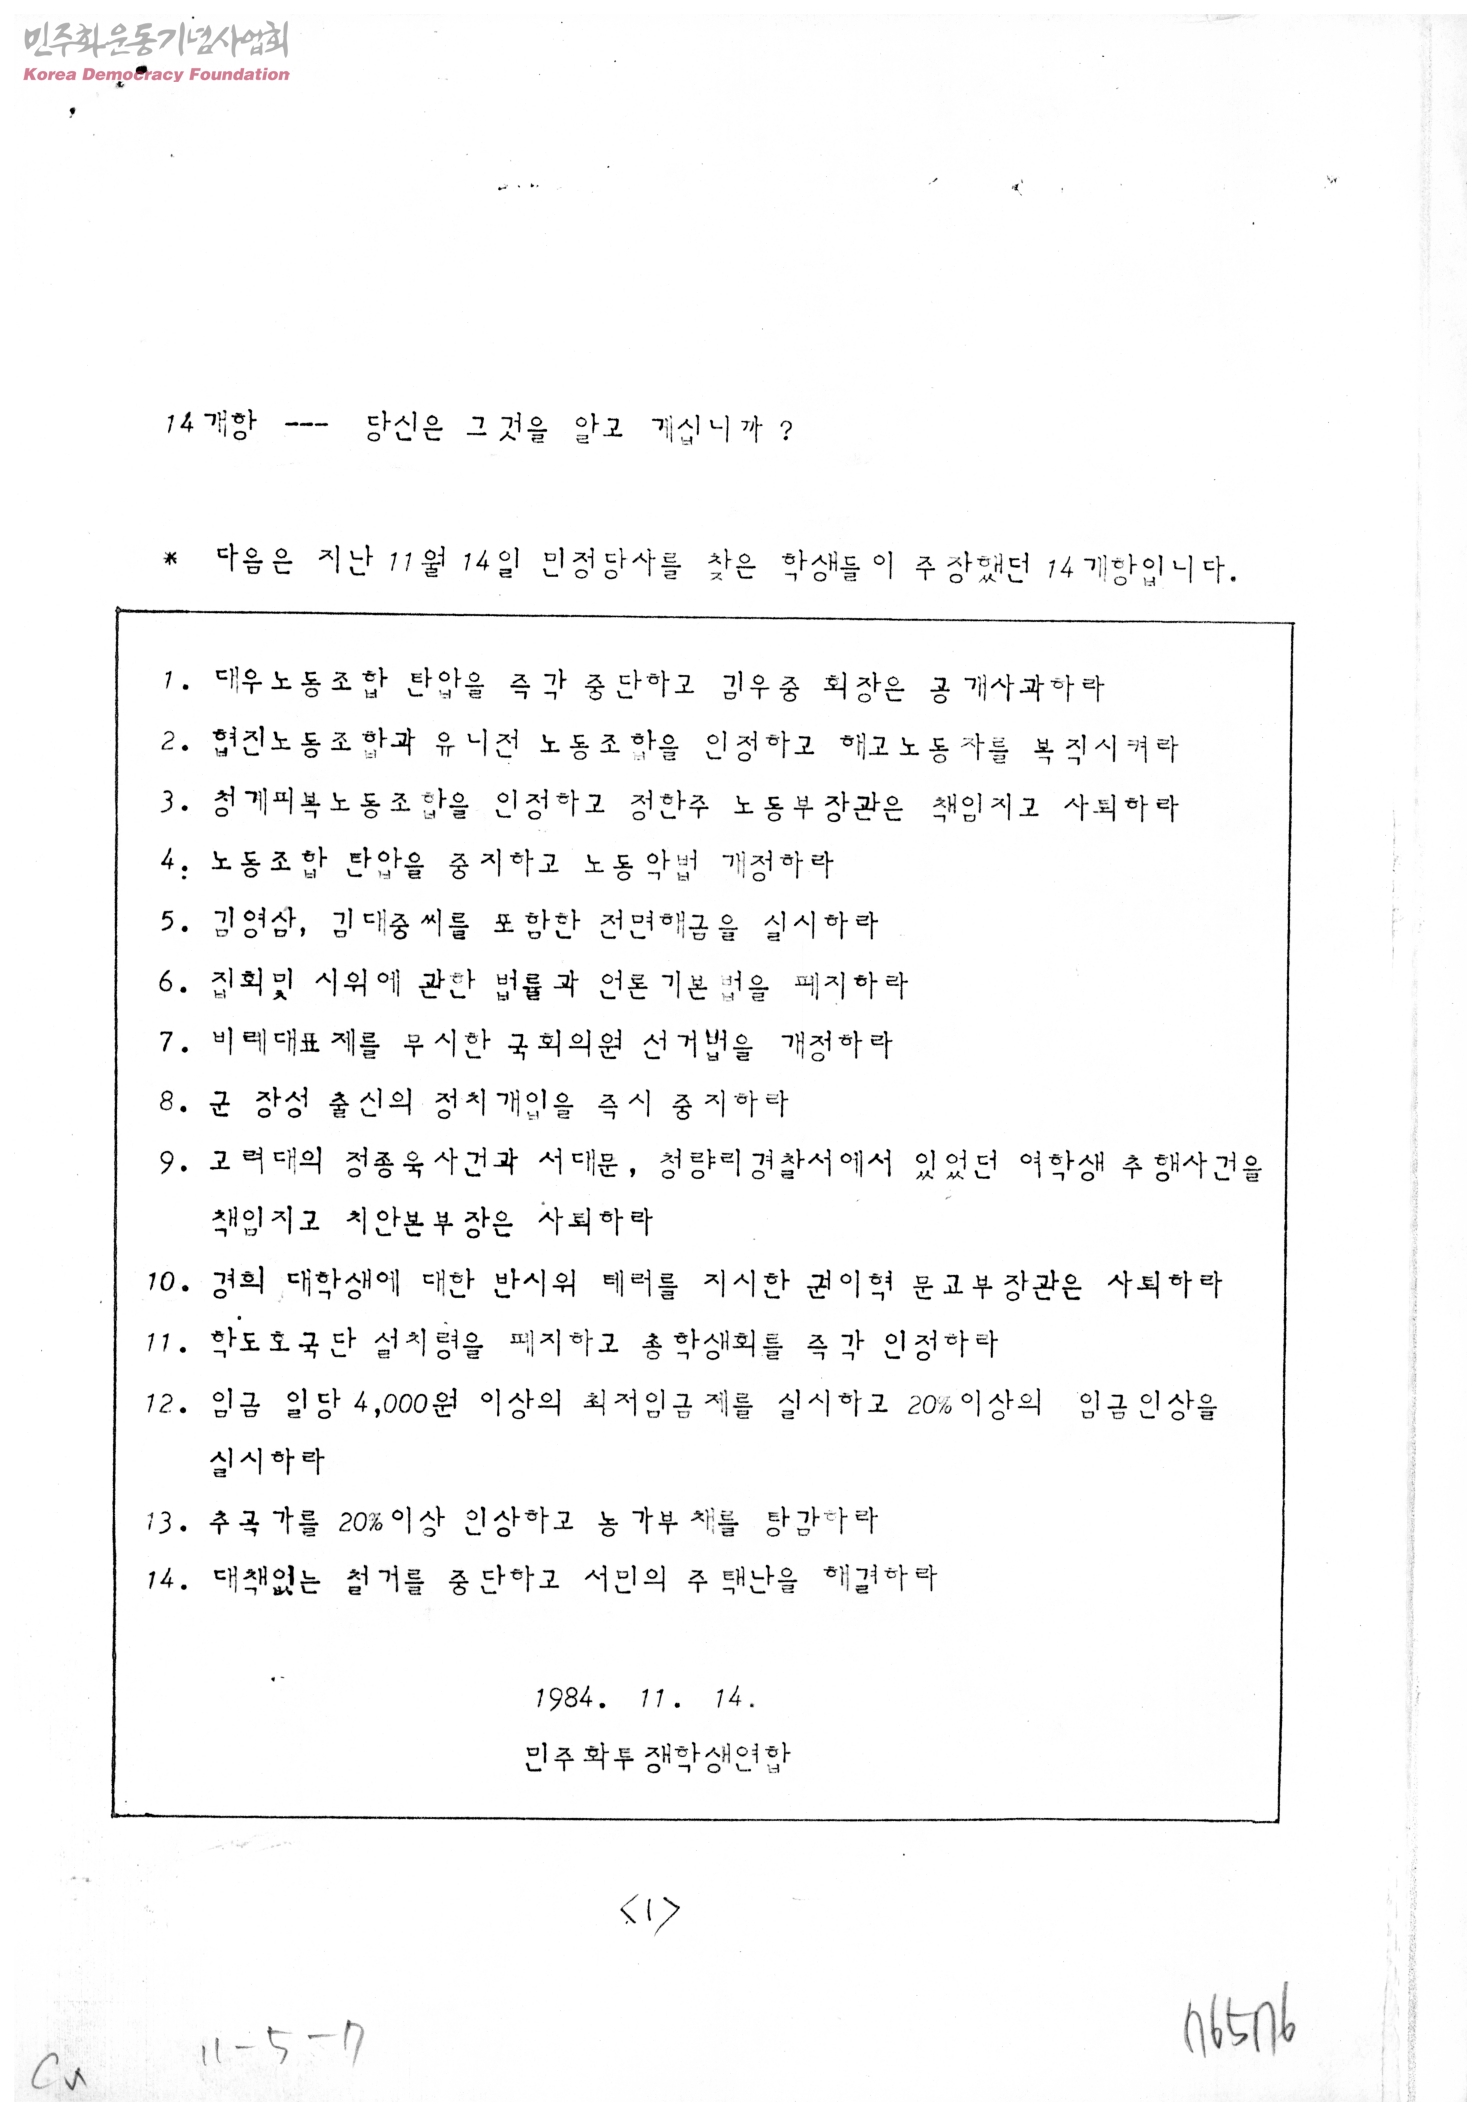 민주화운동기념사업회
Korea Democracy Foundation
14개항 --- 당신은 그것을 알고 게십니까?
* 다음은 지난 11월 14일 민정당사를 찾은 학생들이 주장했던 14개항입니다.
1. 대우노동조합 탄압을 즉각 중단하고 김우중 회장은 공개사과하라
2. 협진노동조합과 유니전 노동조합을 인정하고 해고노동자를 복직시켜라
3. 청게피복노동조합을 인정하고 정한주 노동부장관은 책임지고 사퇴하라
4. 노동조합 탄압을 중지하고 노동악법 개정하라
5. 김영삼, 김대중씨를 포함한 전면해금을 실시하라
6. 집회및 시위에 관한 법률과 언론기본법을 페지하라
7. 비례대표제를 무시한 국회의원 선거법을 개정하라
8. 군 장성 출신의 정치개입을 즉시 중지하라
9. 고려대의 정종욱사건과 서대문, 청량리경찰서에서 있었던 여학생 추행사건을
책임지고 치안본부장은 사퇴하라
10. 경희 대학생에 대한 반시위 테러를 지시한 권이혁 문교부장관은 사퇴하라
11. 학도호국단 설치령을 페지하고 총학생회를 즉각 인정하라
12. 임금 일당 4,000원 이상의 최저임금제를 실시하고 20%이상의 임금인상을
실시하라
13. 추곡가를 20%이상 인상하고 농가부채를 탕감하라
14. 대책없는 철거를 중단하고 서민의 주택난을 해결하라
1984. 11. 14.
민주화투쟁학생연합
<1>
11-5-7
076576